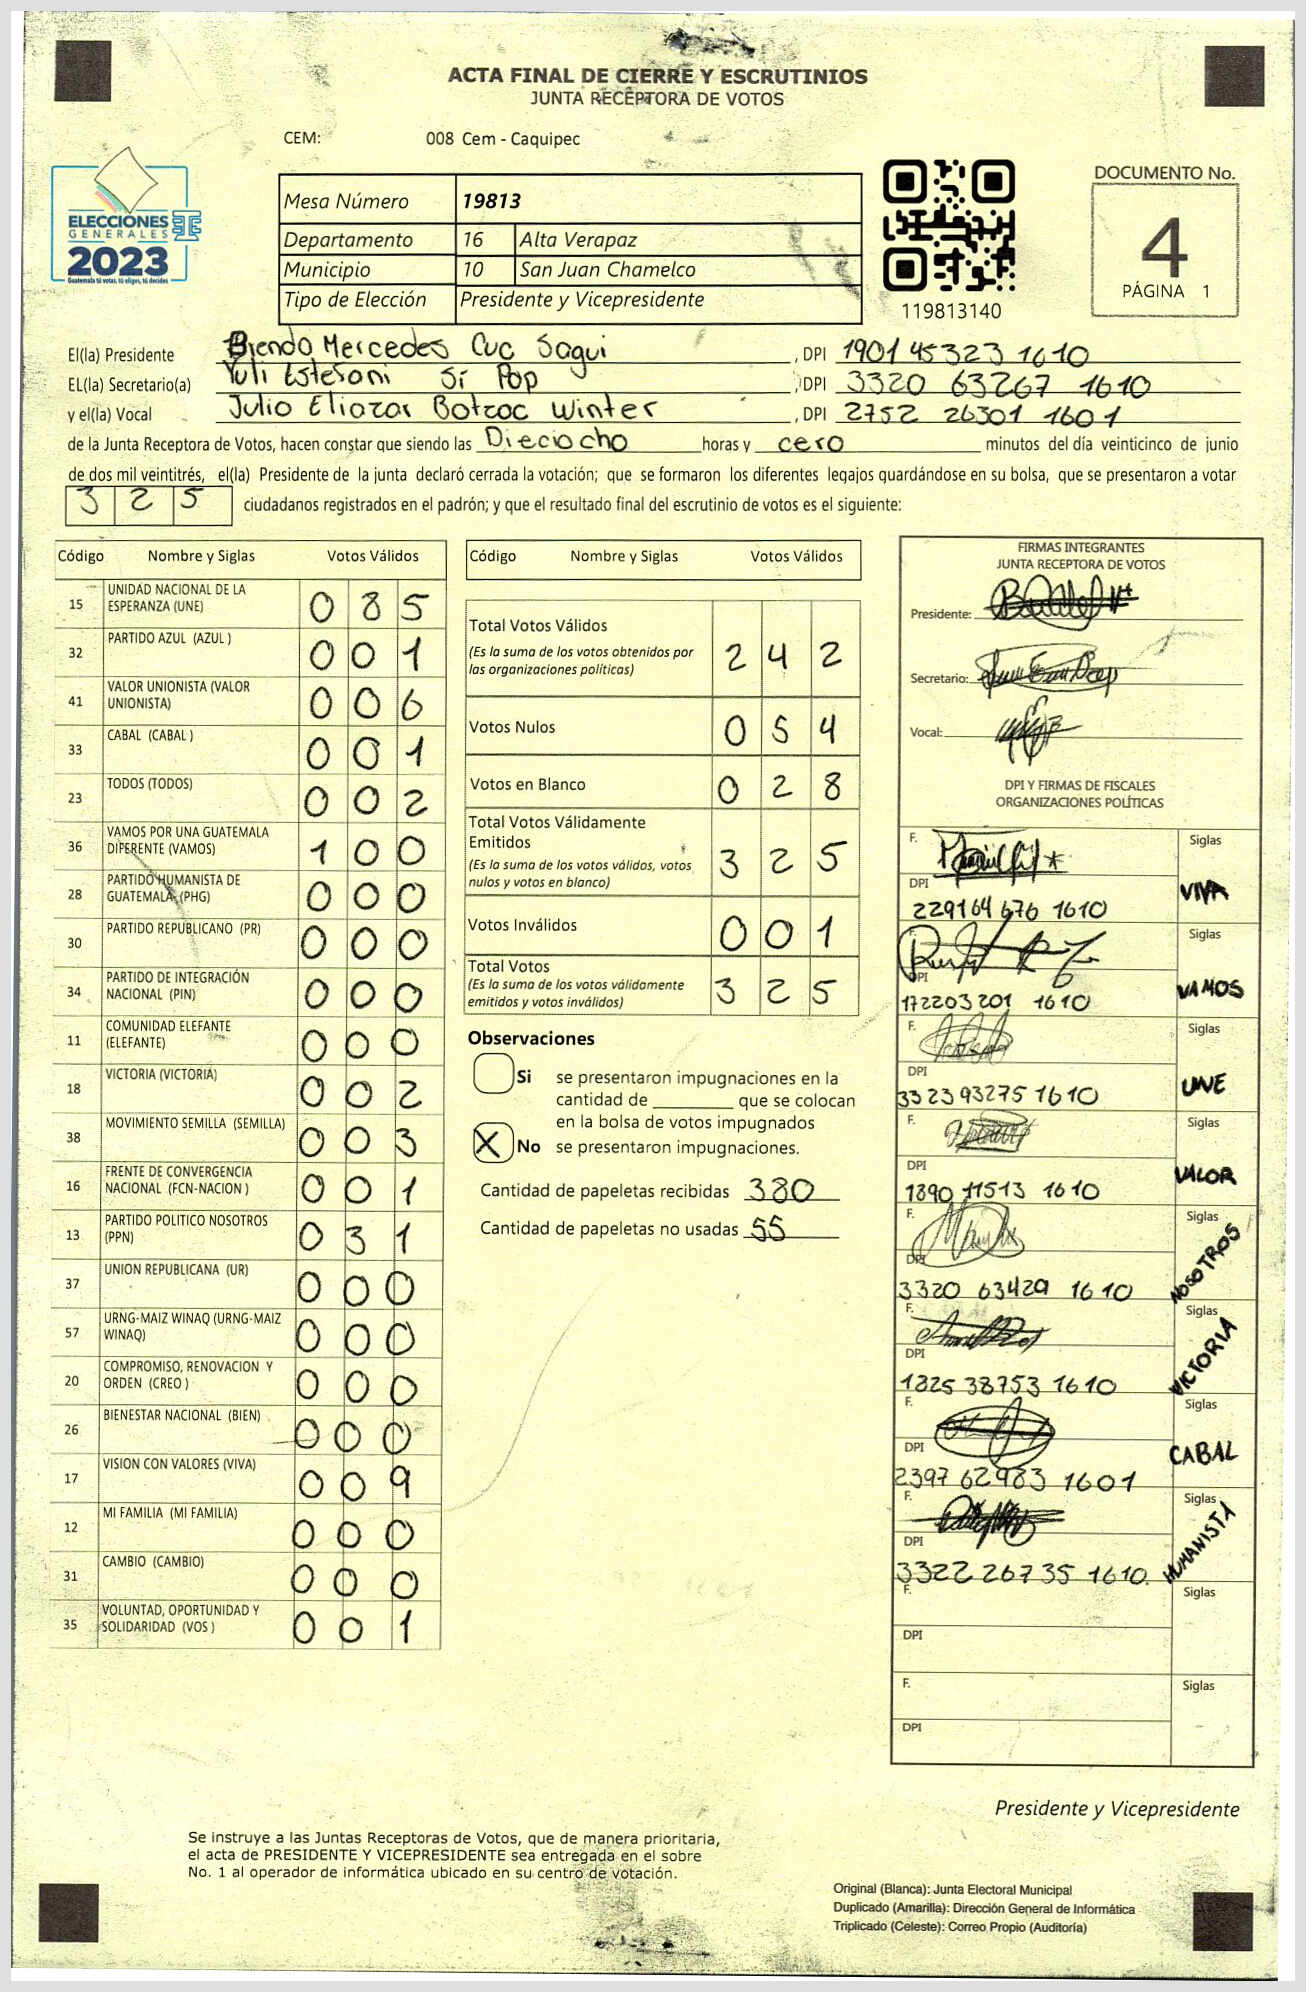 ACTA FINAL DE CIERRE Y ESCRUTINIOS
JUNTA RECEPTORA DE VOTOS
CEM: 008 Cem - Caquipec
ELECCIONES
GENERALES
2023
Guatemala tú votas, tú eliges, tú decides
Mesa Número 19813
Departamento 16 Alta Verapaz
Municipio 10 San Juan Chamelco
Tipo de Elección Presidente y Vicepresidente
119813140
DOCUMENTO No.
4
PÁGINA 1
El(la) Presidente Brenda Mercedes Cuc Sagui , DPI 1901 45323 1610
EL(la) Secretario(a) Yuli Estefani Si Pop , DPI 3320 63267 1610
y el(la) Vocal Julio Eliazar Botzoc Winter , DPI 2752 26301 1601
de la Junta Receptora de Votos, hacen constar que siendo las Dieciocho horas y cero minutos del día veinticinco de junio
de dos mil veintitrés, el(la) Presidente de la junta declaró cerrada la votación; que se formaron los diferentes legajos guardándose en su bolsa, que se presentaron a votar
3 2 5 ciudadanos registrados en el padrón; y que el resultado final del escrutinio de votos es el siguiente:
Código Nombre y Siglas Votos Válidos
15 UNIDAD NACIONAL DE LA ESPERANZA (UNE) 0 8 5
32 PARTIDO AZUL (AZUL ) 0 0 1
41 VALOR UNIONISTA (VALOR UNIONISTA) 0 0 6
33 CABAL (CABAL ) 0 0 1
23 TODOS (TODOS) 0 0 2
36 VAMOS POR UNA GUATEMALA DIFERENTE (VAMOS) 1 0 0
28 PARTIDO HUMANISTA DE GUATEMALA (PHG) 0 0 0
30 PARTIDO REPUBLICANO (PR) 0 0 0
34 PARTIDO DE INTEGRACIÓN NACIONAL (PIN) 0 0 0
11 COMUNIDAD ELEFANTE (ELEFANTE) 0 0 0
18 VICTORIA (VICTORIA) 0 0 2
38 MOVIMIENTO SEMILLA (SEMILLA) 0 0 3
16 FRENTE DE CONVERGENCIA NACIONAL (FCN-NACION ) 0 0 1
13 PARTIDO POLITICO NOSOTROS (PPN) 0 3 1
37 UNION REPUBLICANA (UR) 0 0 0
57 URNG-MAIZ WINAQ (URNG-MAIZ WINAQ) 0 0 0
20 COMPROMISO, RENOVACION Y ORDEN (CREO ) 0 0 0
26 BIENESTAR NACIONAL (BIEN) 0 0 0
17 VISION CON VALORES (VIVA) 0 0 9
12 MI FAMILIA (MI FAMILIA) 0 0 0
31 CAMBIO (CAMBIO) 0 0 0
35 VOLUNTAD, OPORTUNIDAD Y SOLIDARIDAD (VOS ) 0 0 1
Código Nombre y Siglas Votos Válidos
Total Votos Válidos 2 4 2
(Es la suma de los votos obtenidos por
las organizaciones políticas)
Votos Nulos 0 5 4
Votos en Blanco 0 2 8
Total Votos Válidamente
Emitidos 3 2 5
(Es la suma de los votos válidos, votos
nulos y votos en blanco)
Votos Inválidos 0 0 1
Total Votos 3 2 5
(Es la suma de los votos válidamente
emitidos y votos inválidos)
Observaciones
Si se presentaron impugnaciones en la
cantidad de ________ que se colocan
en la bolsa de votos impugnados
X No se presentaron impugnaciones.
Cantidad de papeletas recibidas 380
Cantidad de papeletas no usadas 55
FIRMAS INTEGRANTES
JUNTA RECEPTORA DE VOTOS
Presidente:
Secretario:
Vocal:
DPI Y FIRMAS DE FISCALES
ORGANIZACIONES POLÍTICAS
F. Siglas
DPI VIVA
229164676 1610
F. Siglas
DPI VAMOS
172203201 1610
F. Siglas
DPI UNE
3323 93275 1610
F. Siglas
DPI VALOR
1890 11513 1610
F. Siglas
DPI NOSOTROS
3320 63429 1610
F. Siglas
DPI VICTORIA
1825 38753 1610
F. Siglas
DPI CABAL
2397 62983 1601
F. Siglas
DPI HUMANISTA
3322 26735 1610
F. Siglas
DPI
F. Siglas
DPI
Presidente y Vicepresidente
Se instruye a las Juntas Receptoras de Votos, que de manera prioritaria,
el acta de PRESIDENTE Y VICEPRESIDENTE sea entregada en el sobre
No. 1 al operador de informática ubicado en su centro de votación.
Original (Blanca): Junta Electoral Municipal
Duplicado (Amarilla): Dirección General de Informática
Triplicado (Celeste): Correo Propio (Auditoría)